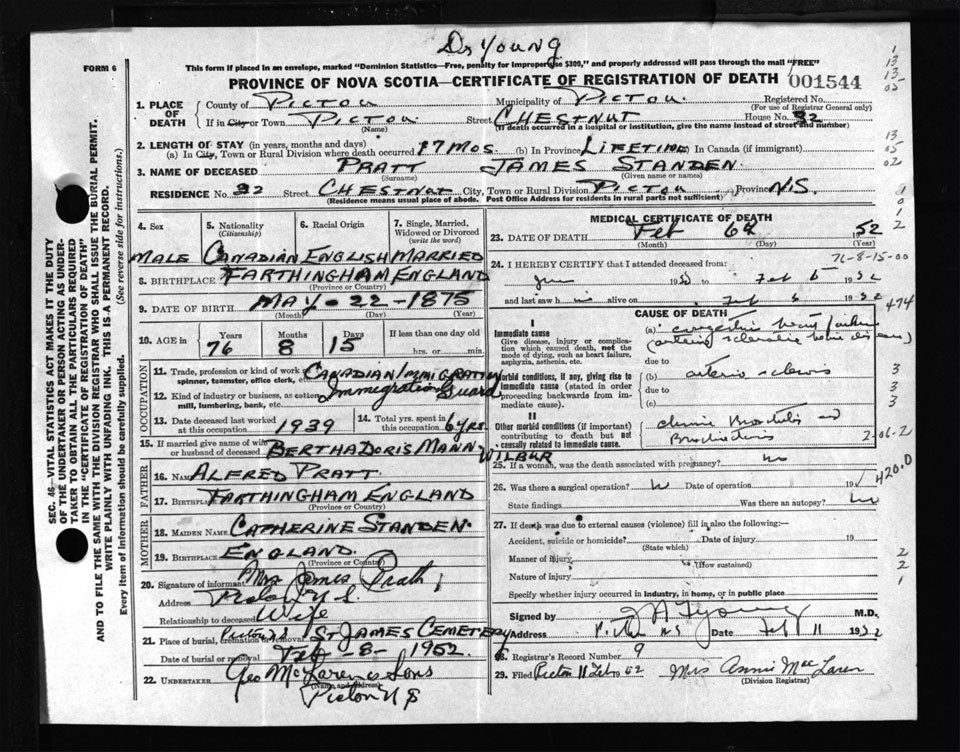 Dr Young
This form if placed in an envelope, marked "Dominion Statistics—Free, penalty for improper use $300," and properly addressed will pass through the mail "FREE"
FORM 6
PROVINCE OF NOVA SCOTIA—CERTIFICATE OF REGISTRATION OF DEATH 001544
1. PLACE OF DEATH County of PICTOU Municipality of PICTOU. Registered No. (For use of Registrar General only)
If in City or Town PICTOU (Name) Street CHESTNUT House No. 32
(If death occurred in a hospital or institution, give the name instead of street and number)
2. LENGTH OF STAY (in years, months and days)
(a) In City, Town or Rural Division where death occurred 17 MOS. (b) In Province LIFETIME In Canada (if immigrant)
3. NAME OF DECEASED PRATT (Surname) JAMES STANDEN. (Given name or names)
RESIDENCE No. 32 Street CHESTNUT City, Town or Rural Division PICTOU Province N.S.
(Residence means usual place of abode. Post Office Address for residents in rural parts not sufficient)
4. Sex 5. Nationality (Citizenship) 6. Racial Origin 7. Single, Married, Widowed or Divorced (write the word)
MALE CANADIAN ENGLISH MARRIED
8. BIRTHPLACE FARTHINGHAM ENGLAND
(Province or Country)
9. DATE OF BIRTH MAY - 22 - 1875
(Month) (Day) (Year)
10. AGE in Years Months Days If less than one day old
76 8 15 hrs. or min.
OCCUPATION
11. Trade, profession or kind of work as spinner, teamster, office clerk, etc. CANADIAN IMMIGRATION
12. Kind of industry or business, as cotton mill, lumbering, bank, etc. Immigration Guard
13. Date deceased last worked at this occupation 1939 14. Total yrs. spent in this occupation 6 yrs.
15. If married give name of wife or husband of deceased BERTHA DORIS MANN WILBUR
FATHER
16. Name ALFRED PRATT.
17. Birthplace FARTHINGHAM ENGLAND
(Province or Country)
MOTHER
18. MAIDEN NAME CATHERINE STANDEN.
19. BIRTHPLACE ENGLAND.
(Province or Country)
20. Signature of informant Mrs James Pratt
Address Pictou N.S.
Relationship to deceased Wife
21. Place of burial, cremation or removal Pictou NS ST JAMES CEMETERY
Date of burial or removal Feb - 8 - 1952
22. UNDERTAKER Geo McLaren & Sons
(Name and address)
Pictou N S
MEDICAL CERTIFICATE OF DEATH
23. DATE OF DEATH Feb 6th 1952
(Month) (Day) (Year)
76-8-15-00
24. I HEREBY CERTIFY that I attended deceased from:
Feb 6 1952
and last saw h im alive on Feb 6 1952
474
CAUSE OF DEATH
I
Immediate cause
Give disease, injury or complication which caused death, not the mode of dying, such as heart failure, asphyxia, asthenia, etc.
(a) congestive heart failure
(arterio sclerotic heart disease)
due to
Morbid conditions, if any, giving rise to immediate cause (stated in order proceeding backwards from immediate cause).
(b) arterio sclerosis
due to
(c)
II
Other morbid conditions (if important) contributing to death but not causally related to immediate cause.
2-06-2
25. If a woman, was the death associated with pregnancy? no
420.0
26. Was there a surgical operation? N Date of operation 19
State findings Was there an autopsy? No
27. If death was due to external causes (violence) fill in also the following:—
Accident, suicide or homicide? Date of injury 19
(State which)
Manner of injury
(How sustained)
Nature of injury
Specify whether injury occurred in industry, in home, or in public place
Signed by Young M.D.
Address Pictou NS Date Feb 11 1952
28. Registrar's Record Number 9
29. Filed Pictou 11 Feb 1952 Mrs Annie MacLaren
(Division Registrar)
SEC. 46—VITAL STATISTICS ACT MAKES IT THE DUTY OF THE UNDERTAKER OR PERSON ACTING AS UNDERTAKER TO OBTAIN ALL THE PARTICULARS REQUIRED IN THE "CERTIFICATE OF REGISTRATION OF DEATH" AND TO FILE THE SAME WITH THE DIVISION REGISTRAR WHO SHALL ISSUE THE BURIAL PERMIT.
WRITE PLAINLY WITH UNFADING INK. THIS IS A PERMANENT RECORD.
Every item of information should be carefully supplied. (See reverse side for instructions.)